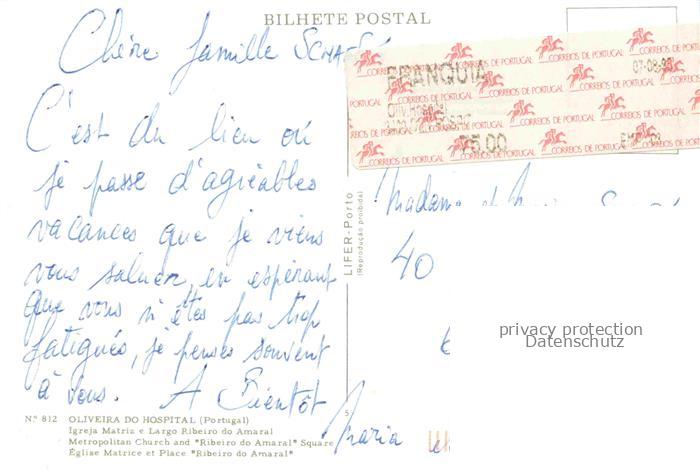 BILHETE POSTAL
Chère famille
C'est du lieu où
je passe d'agréables
vacances que je viens
vous saluer, en espérant
que vous n'êtes pas trop
fatigués, je penses souvent
à vous. A Bientôt
Maria
CORREIOS DE PORTUGAL
FRANQUIA
07-08-9
75.00
LIFER-Porto
(Reprodução proibida)
Madame et
40
privacy protection
Datenschutz
N.º 812 OLIVEIRA DO HOSPITAL (Portugal)
Igreja Matriz e Largo Ribeiro do Amaral
Metropolitan Church and "Ribeiro do Amaral" Square
Église Matrice et Place "Ribeiro do Amaral"